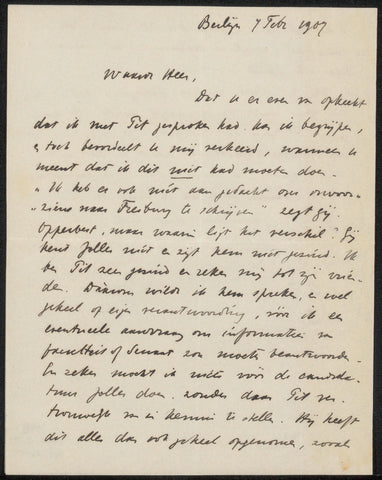 Berlijn 7 Febr 1907
Waarde Heer,
Dat U er even van opkeekt
dat ik met Tit gesproken had kan ik begrijpen,
en toch beoordeelt U mij verkeerd, wanneer U
meent dat ik dit niet had moeten doen.
"Ik heb er ook niet aan gedacht om onvoor-
"ziens naar Freiburg te schrijven" zegt gij.
Opperbest, maar waarin ligt het verschil? Gij
kent Jolles niet en zijt hem niet gezind. Ik
ben Tit zeer gezind en reken mij tot zijn vrien-
den. Dáárom wilde ik hem spreken, en wel
geheel op eigen verantwoording, vóór ik een
eventueele aanvraag om informatie van
faculteit of Senaat zou moeten beantwoorden.
En zeker mocht ik niets vóór de candida-
tuur Jolles doen, zonder daar Tit ver-
trouwelijk van in kennis te stellen. Hij heeft
dit alles dan ook geheel opgenomen, zooals